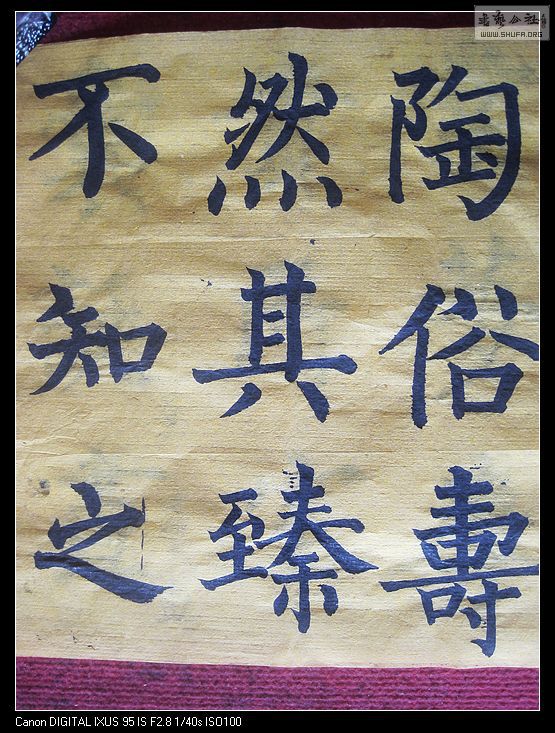 陶俗壽
然其臻
不知之
書藝公社
WWW.SHUFA.ORG
Canon DIGITAL IXUS 95 IS F2.8 1/40s ISO100